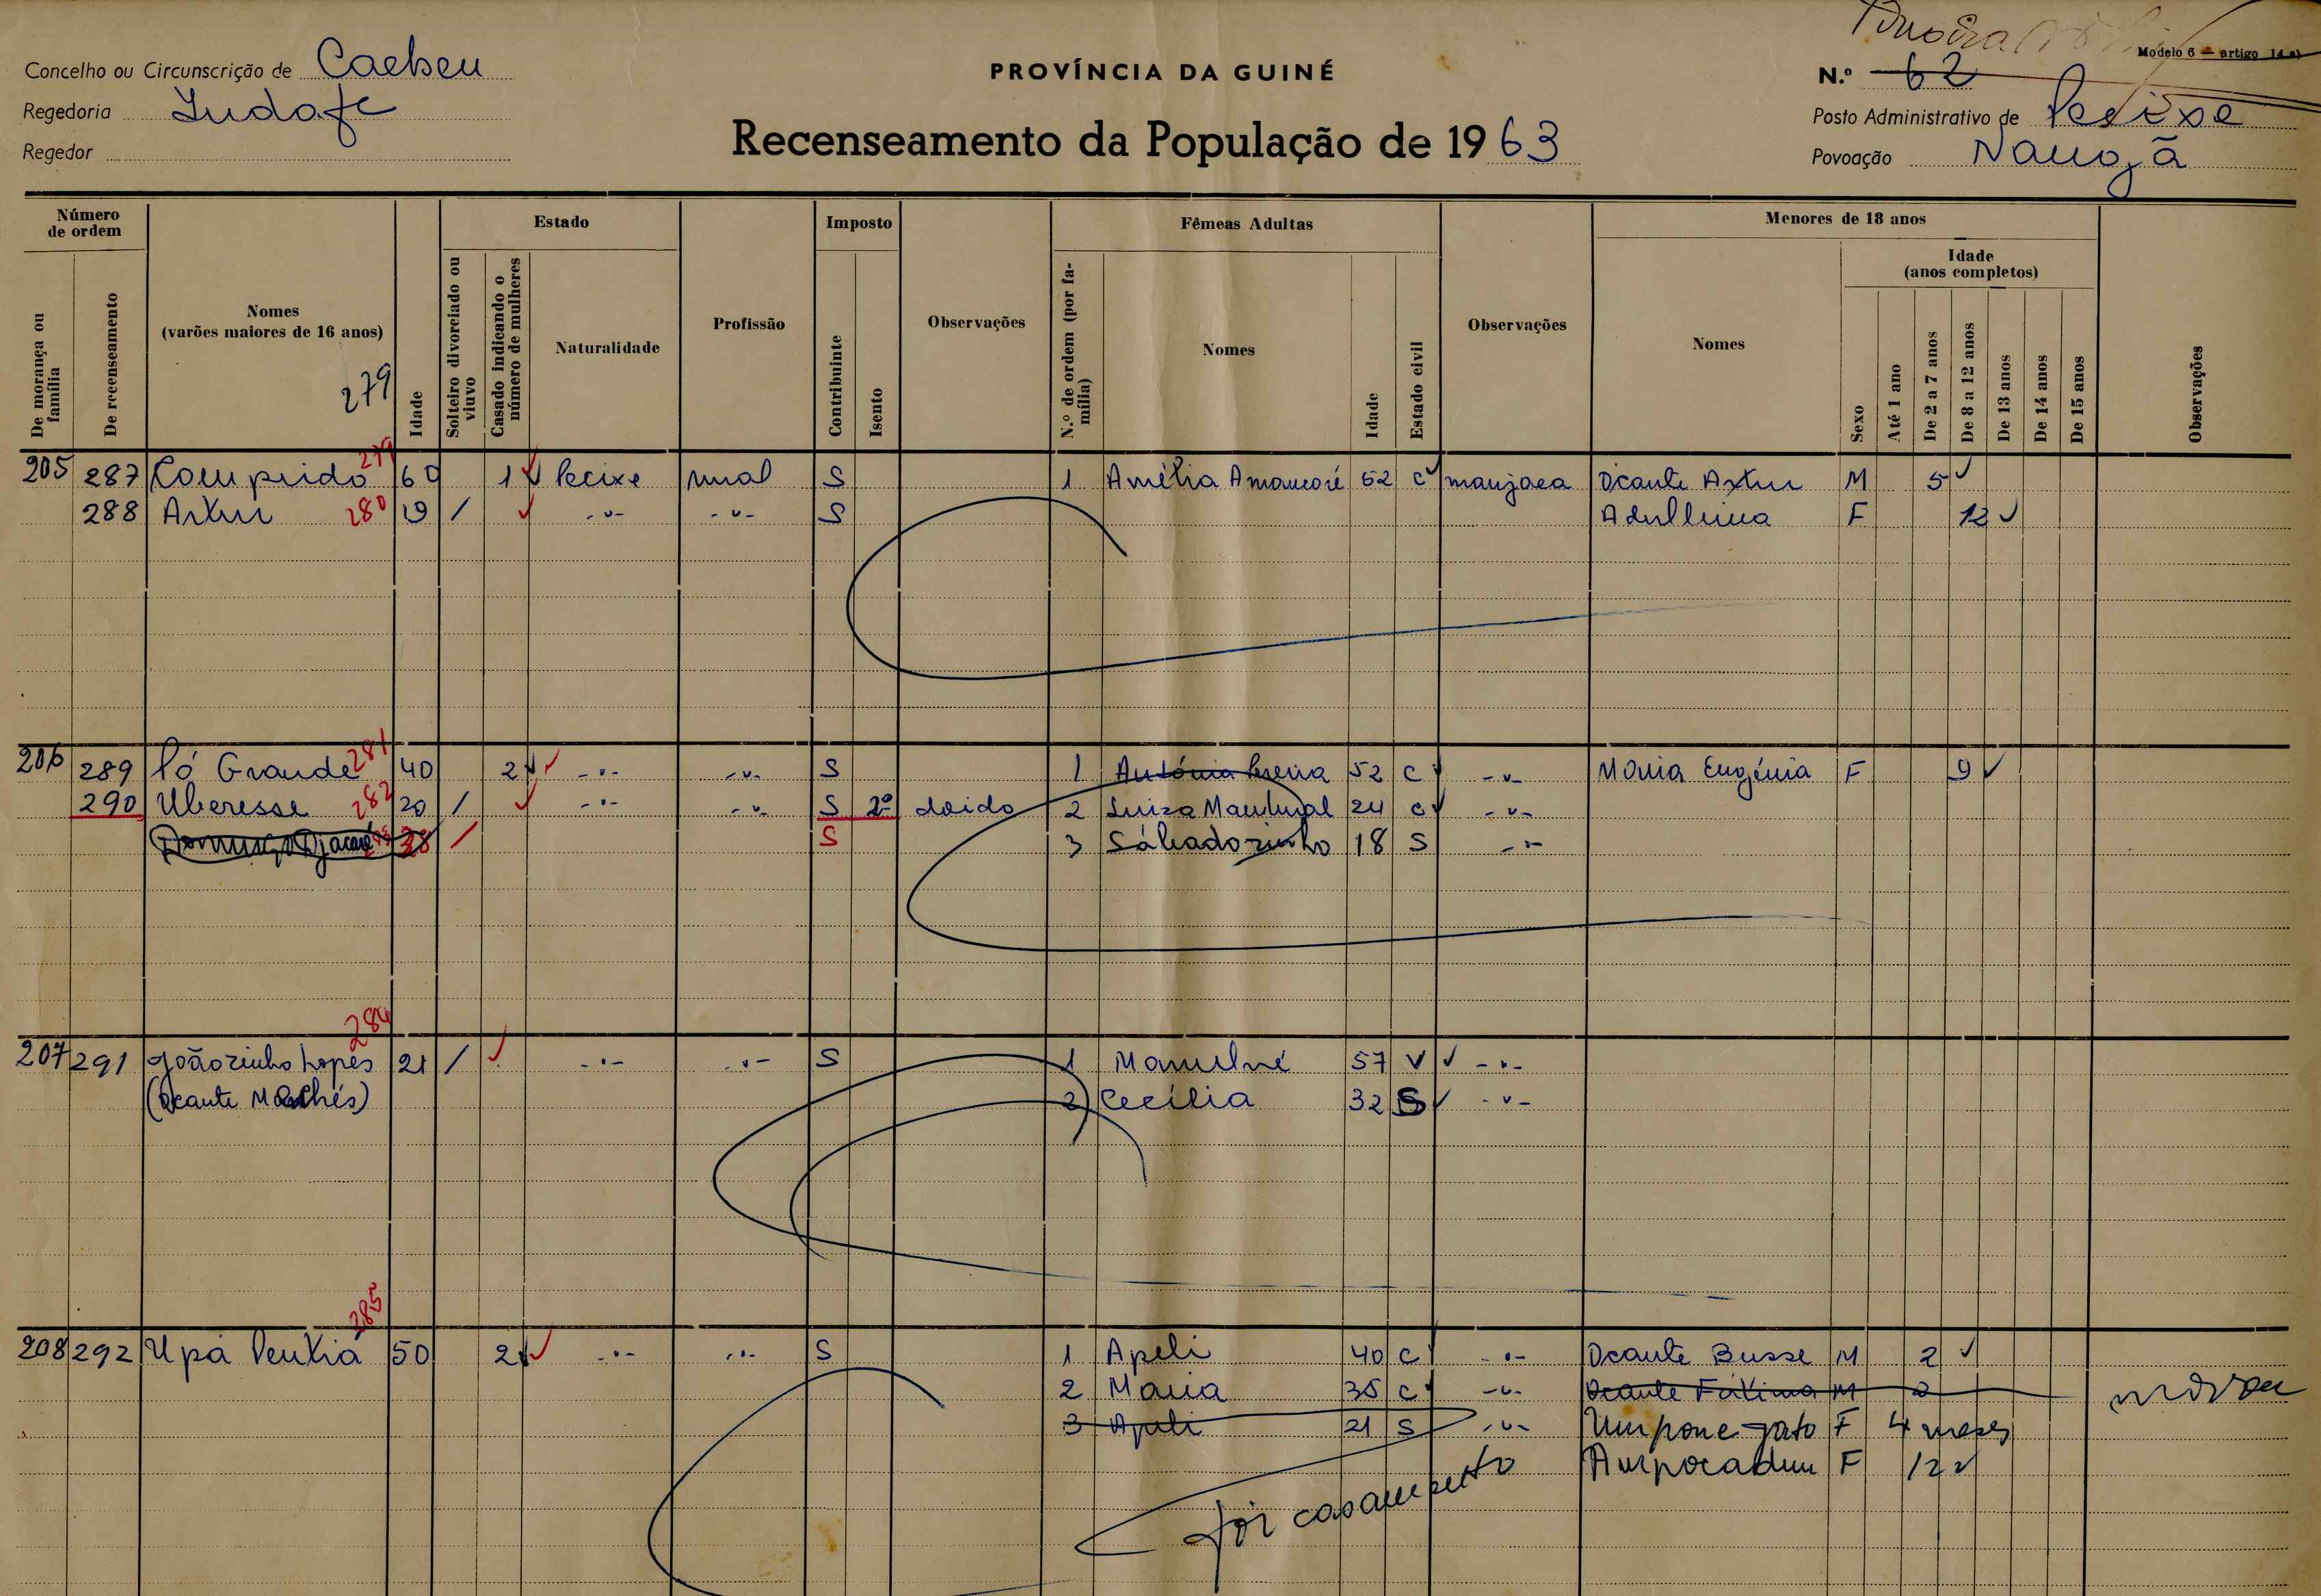 Modelo 6 — artigo 14 a)
Concelho ou Circunscrição de Caebeu
PROVÍNCIA DA GUINÉ
N.º 62
Regedoria Iudafe
Recenseamento da População de 1963
Posto Administrativo de Pecixe
Regedor
Povoação
Número de ordem
Estado
Imposto
Fêmeas Adultas
Menores de 18 anos
Idade
(anos completos)
De morança ou família
De recenseamento
Nomes
(varões maiores de 16 anos)
279
Idade
Solteiro divorciado ou viuvo
Casado indicando o número de mulheres
Naturalidade
Profissão
Contribuinte
Isento
Observações
N.º de ordem (por família)
Nomes
Idade
Estado civil
Observações
Nomes
Sexo
Até 1 ano
De 2 a 7 anos
De 8 a 12 anos
De 13 anos
De 14 anos
De 15 anos
Observações
205 287 Comprido 279 60 1 Pecixe rural S 1 Amélia 52 c manjaca Dcante Artur M 5
288 Artur 280 19 / -"- -"- S F 12
206 289 Pó Grande 281 40 2 -"- -"- S 1 António Pereira 52 c -"- Maria Eugénia F 9
290 Uberesse 282 20 / -"- -"- S 2º doido 2 Luiza 24 c -"-
38 / S 3 Sábadozinho 18 S -"-
207 291 Joãozinho Lopes 284 21 / -"- -"- S 1 57 V -"-
(Dcante 2 Cecília 32 S -"-
208 292 Upá 285 50 2 -"- -"- S 1 Apeli 40 c -"- Dcante Busse M 2
2 Maria 35 c -"- Dcante Fátima M 2
3 Apeli 21 S -"- F 4 meses
F 12
foi casamento